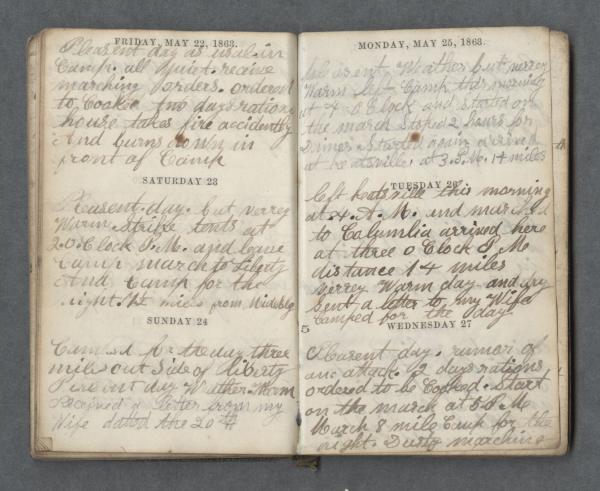 FRIDAY, MAY 22, 1863.
Pleasent day as usal in
Camp. all Quiet. receive
marching orders. ordered
to Cooke two days rations
house takes fire accidently
And burns down in
front of Camp
SATURDAY 23
Pleasent day. but verry
Warm Strike tents at
2.O.Clock P.M. and leave
Camp march to Liberty
And Camp for the
night.
miles from
SUNDAY 24
Camped for the day three
mile out side of liberty
Pleasent day Wather Warm
Received a letter from my
Wife dated the 20th
MONDAY, MAY 25, 1863.
Pleasent Weather but verry
Warm left Camp this morning
at 4 O Clock and started on
the march Stoped 2 hours for
Dinner Started again arrived
at at 3 P.M. 14 miles
TUESDAY 26
left this morning
at 4. A. M. and marched
to Calumbia arrived here
at three O Clock P M
distance 14 miles
verrey Warm day and dry
Sent a letter to my Wife
Camped for the day.
5
WEDNESDAY 27
Pleasent day. rumor of
an attack. 2 days rations
ordered to be Cooked. Start
on the march at 5 P M
March 8 mile Camp for the
night. Dusty marching